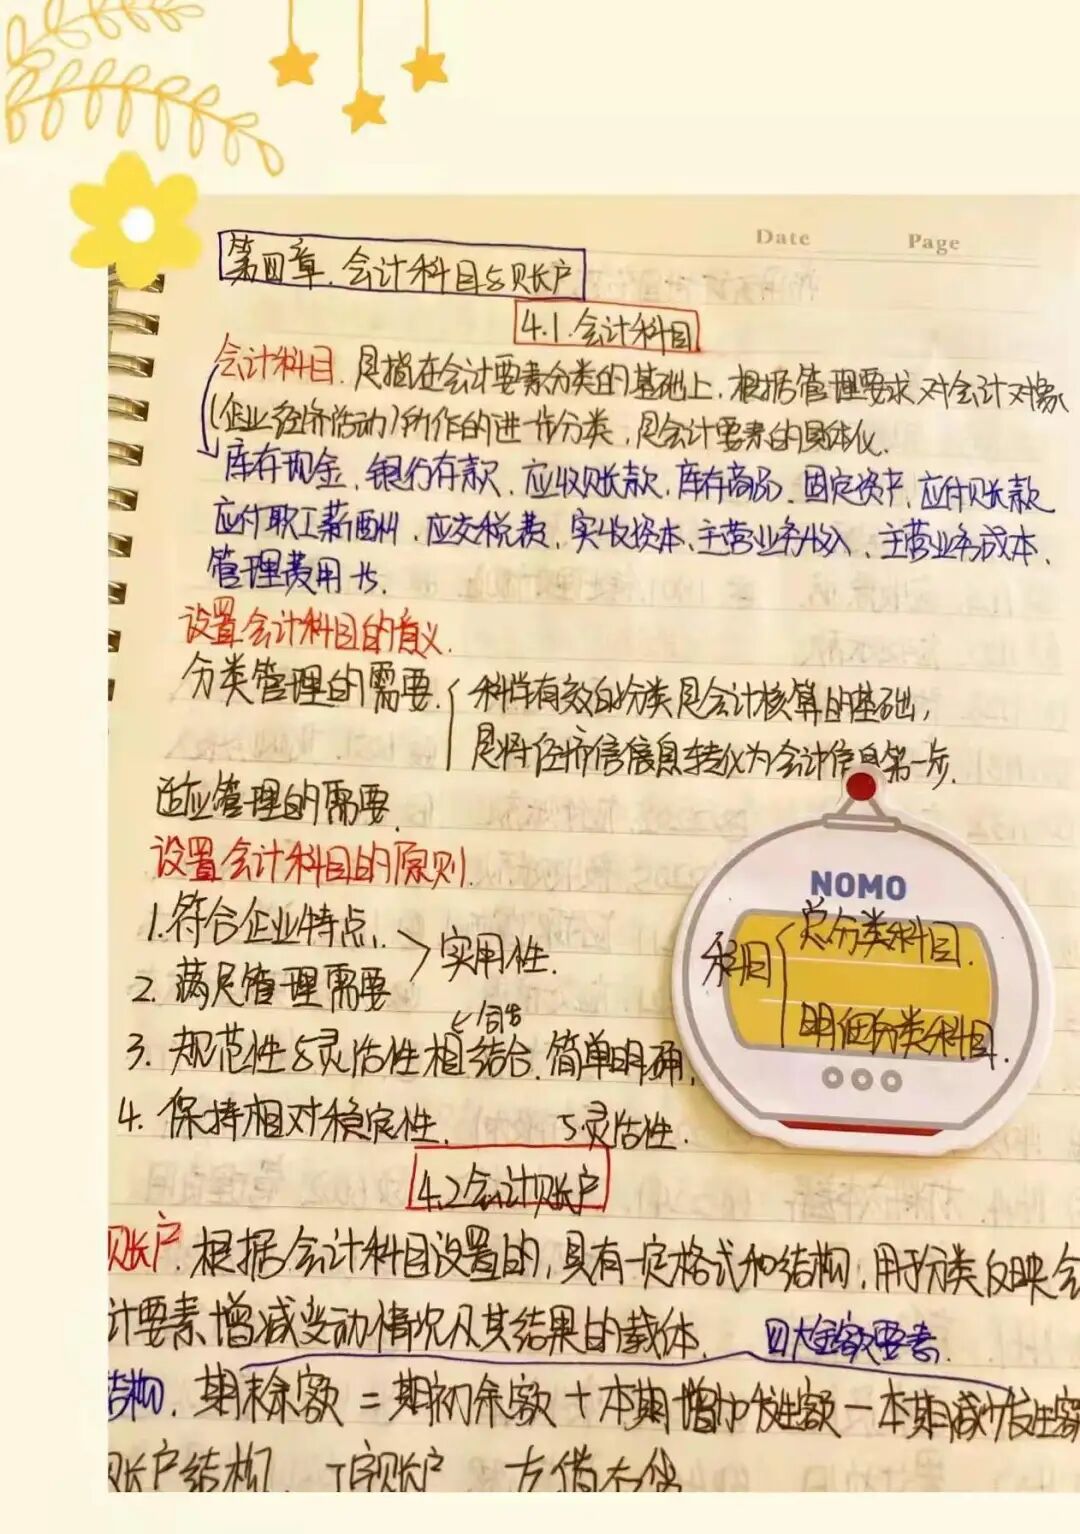 Date Page
第四章.会计科目与账户
4.1.会计科目
会计科目.是指在会计要素分类的基础上.根据管理要求对会计对象
(企业经济活动)所作的进一步分类,是会计要素的具体化.
库存现金.银行存款.应收账款.库存商品.固定资产.应付账款
应付职工薪酬.应交税费.实收资本.主营业务收入、主营业务成本.
管理费用
设置会计科目的意义.
分类管理的需要.
科学有效的分类是会计核算的基础,
是将经济信信息转化为会计信息第一步.
适应管理的需要.
设置会计科目的原则.
1.符合企业特点.
2.满足管理需要
实用性.
3.规范性与灵活性相结合.简单明确.
4.保持相对稳定性.
5灵活性.
NOMO
科目
总分类科目.
明细分类科目.
4.2会计账户
账户.根据会计科目设置的,具有一定格式和结构,用于分类反映会
计要素增减变动情况及其结果的载体.
四大金额要素.
结构.期末余额=期初余额+本期增加发生额-本期减少发生额
账户结构 丁字账户 左借右贷